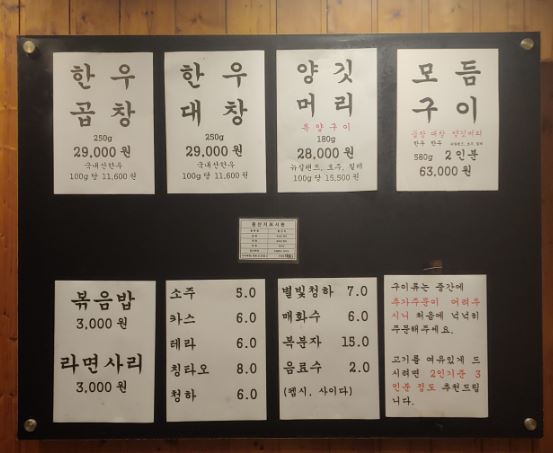 한우
곱창
250g
29,000 원
국내산한우
100g 당 11,600원
한우
대창
250g
29,000 원
국내산한우
100g 당 11,600원
양깃
머리
특양구이
180g
28,000 원
뉴질랜드, 호주, 칠레
100g 당 15,500원
모듬
구이
곱창 대창 양깃머리
한우 한우
580g 2인분
63,000 원
원산지표시판
볶음밥
3,000 원
라면사리
3,000 원
소주 5.0
카스 6.0
테라 6.0
칭타오 8.0
청하 6.0
별빛청하 7.0
매화수 6.0
복분자 15.0
음료수 2.0
(펩시, 사이다)
구이류는 중간에
추가주문이 어려우
시니 처음에 넉넉히
주문해주세요.
고기를 여유있게 드
시려면 2인기준 3
인분 정도 추천드립
니다.